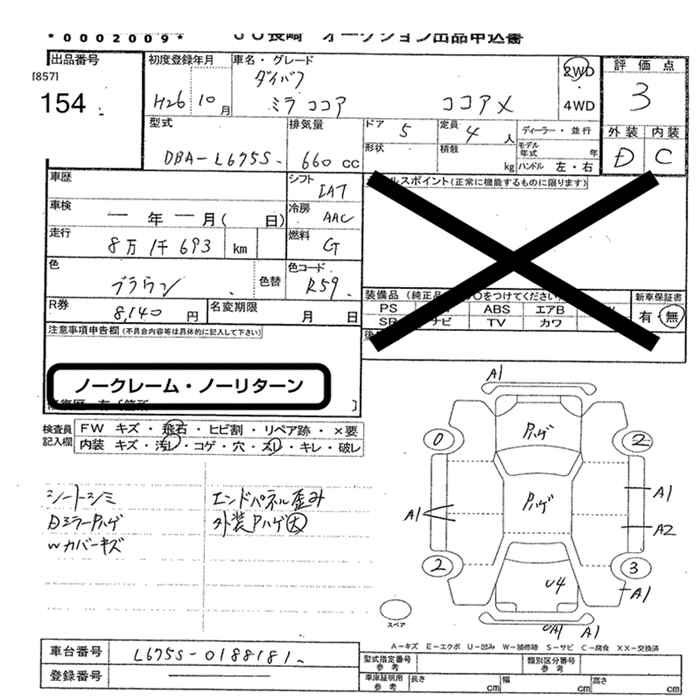 *0002009*
JU長崎 オークション出品申込書
出品番号
[857]
154
初度登録年月
H26 10月
車名・グレード
ダイハツ
ミラココア ココアX
2WD
・
4WD
評価点
3
外装 内装
D C
型式
DBA-L675S
排気量
660 cc
ドア 5
定員 4 人
形状
積載 kg
ディーラー・並行
モデル年式 年
ハンドル 左・右
車歴
車検
― 年 ― 月( 日)
走行
8万1千693 km
色
ブラウン
色替
R券
8,140 円
シフト
IAT
冷房
AAC
燃料
G
色コード
R59
名変期限
月 日
ルスポイント(正常に機能するものに限ります)
装備品(純正品 ○をつけてください
PS ABS エアB
SR ナビ TV カワ
新車保証書
有・無
注意事項申告欄(不具合内容等は具体的に記入して下さい)
ノークレーム・ノーリターン
検査員記入欄
FW キズ・飛石・ヒビ割・リペア跡・×要
内装 キズ・汚レ・コゲ・穴・スレ・キレ・破レ
シートシミ
DミラーPハゲ
Wカバーキズ
エンドパネル歪み
外装Pハゲ大
A1
0
Pハゲ
2
A1
Pハゲ
A1
A2
2
U4
3
A1
スペア
UA1 A1
A-キズ E-エクボ U-凹み W-補修跡 S-サビ C-腐食 XX-交換済
車台番号
L675S-0188181
登録番号
型式指定番号 参考
類別区分番号 参考
車庫証明用 参考
長さ cm 幅 cm 高さ cm